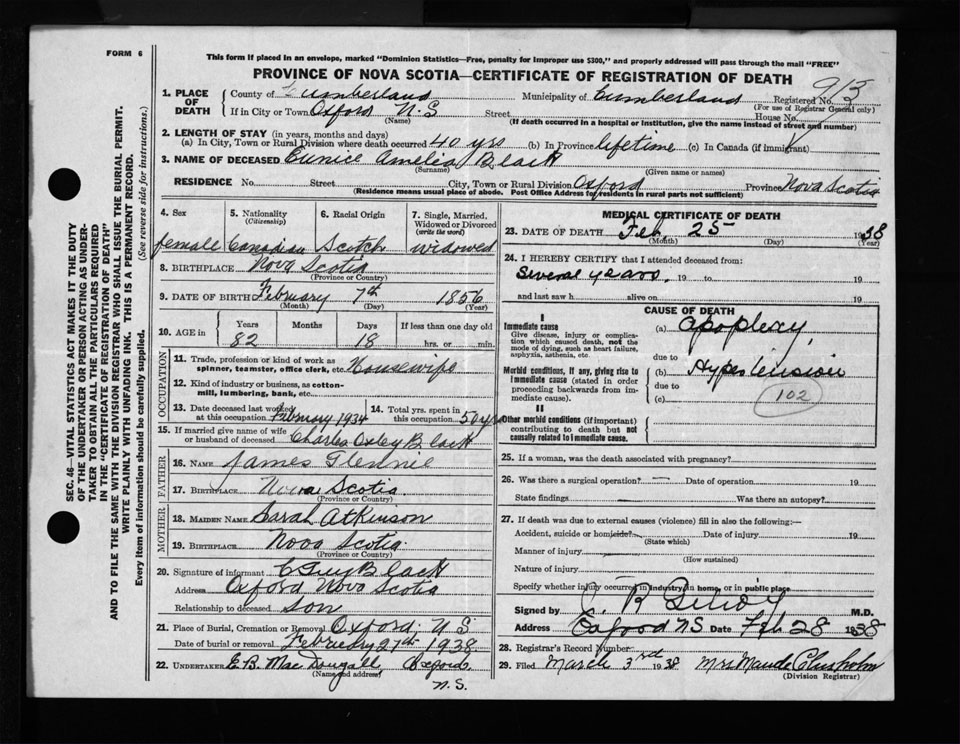 FORM 6
This form if placed in an envelope, marked "Dominion Statistics—Free, penalty for improper use $300," and properly addressed will pass through the mail "FREE"
PROVINCE OF NOVA SCOTIA—CERTIFICATE OF REGISTRATION OF DEATH
1. PLACE OF DEATH
County of Cumberland Municipality of Cumberland Registered No. 913
(For use of Registrar General only)
If in City or Town Oxford N.S Street House No.
(Name) (If death occurred in a hospital or institution, give the name instead of street and number)
2. LENGTH OF STAY (in years, months and days)
(a) In City, Town or Rural Division where death occurred 40 yrs (b) In Province lifetime (c) In Canada (if immigrant)
3. NAME OF DECEASED Eunice Amelia Black
(Surname) (Given name or names)
RESIDENCE No. Street City, Town or Rural Division Oxford Province Nova Scotia
(Residence means usual place of abode. Post Office Address for residents in rural parts not sufficient)
4. Sex
female
5. Nationality
(Citizenship)
Canadian
6. Racial Origin
Scotch
7. Single, Married, Widowed or Divorced
(write the word)
widowed
8. BIRTHPLACE Nova Scotia
(Province or Country)
9. DATE OF BIRTH February 7th 1856
(Month) (Day) (Year)
10. AGE in
Years Months Days If less than one day old
82 18 hrs. or min.
OCCUPATION
11. Trade, profession or kind of work as
spinner, teamster, office clerk, etc. Housewife
12. Kind of industry or business, as cotton-
mill, lumbering, bank, etc.
13. Date deceased last worked
at this occupation February 1934
14. Total yrs. spent in
this occupation 50 yrs
15. If married give name of wife
or husband of deceased Charles Oxley Black
FATHER
16. NAME James Glennie
17. BIRTHPLACE Nova Scotia
(Province or Country)
MOTHER
18. MAIDEN NAME Sarah Atkinson
19. BIRTHPLACE Nova Scotia
(Province or Country)
20. Signature of informant C Guy Black
Address Oxford Nova Scotia
Relationship to deceased Son
21. Place of Burial, Cremation or Removal Oxford N S
Date of burial or removal February 27th 1938
22. UNDERTAKER E.B. MacDougall, Oxford
(Name and address)
N.S.
MEDICAL CERTIFICATE OF DEATH
23. DATE OF DEATH Feb. 25 1938
(Month) (Day) (Year)
24. I HEREBY CERTIFY that I attended deceased from:
Several years, 19 to 19
and last saw h alive on 19
CAUSE OF DEATH
I
Immediate cause
Give disease, injury or complication which caused death, not the mode of dying, such as heart failure, asphyxia, asthenia, etc.
(a) apoplexy
due to
Morbid conditions, if any, giving rise to immediate cause (stated in order proceeding backwards from immediate cause).
(b) Hypertension
due to
(c) 102
II
Other morbid conditions (if important) contributing to death but not causally related to immediate cause.
25. If a woman, was the death associated with pregnancy?
26. Was there a surgical operation? — Date of operation 19
State findings Was there an autopsy?
27. If death was due to external causes (violence) fill in also the following:—
Accident, suicide or homicide? Date of injury 19
(State which)
Manner of injury
(How sustained)
Nature of injury
Specify whether injury occurred in industry, in home, or in public place
Signed by M.D.
Address Oxford N.S. Date Feb 28 1938
28. Registrar's Record Number
29. Filed March 3rd 1938 Mrs Maude Chisholm
(Division Registrar)
SEC. 46—VITAL STATISTICS ACT MAKES IT THE DUTY
OF THE UNDERTAKER OR PERSON ACTING AS UNDER-
TAKER TO OBTAIN ALL THE PARTICULARS REQUIRED
IN THE "CERTIFICATE OF REGISTRATION OF DEATH"
AND TO FILE THE SAME WITH THE DIVISION REGISTRAR WHO SHALL ISSUE THE BURIAL PERMIT.
WRITE PLAINLY WITH UNFADING INK. THIS IS A PERMANENT RECORD.
Every item of information should be carefully supplied. (See reverse side for instructions.)